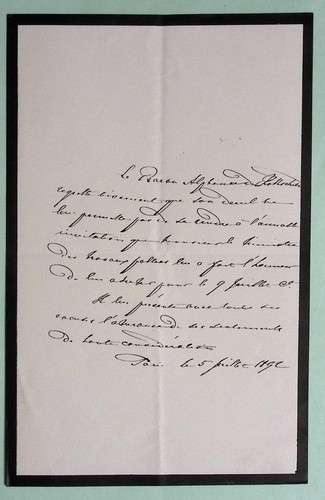 Le Baron Alphonse de Rothschild
regrette vivement que son deuil ne
lui permette pas de se rendre à l'aimable
invitation que monsieur le ministre
des travaux publics lui a fait l'honneur
de lui adresser pour le 9 Juillet ct
Il lui présente avec toutes ses
excuses l'assurance de ses sentiments
de haute considération
Paris le 5 Juillet 1892